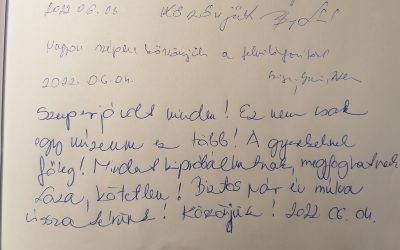 2022 06. 03. Köszönjük
Nagyon szépen köszönjük a felvilágosítást
2022. 06. 04.
Szuper jó volt minden! Ez nem csak
egy múzeum ez több! A gyerekeknek
főleg! Mindent kipróbálhatnak, megfoghatnak
Laza, kötetlen! Biztos pár év múlva
vissza térünk! Köszönjük! 2022 06. 04.